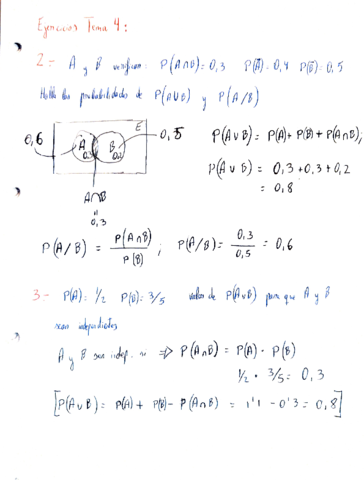 Ejercicios Tema 4:
2- A y B verifican: P(A∩B)=0,3 P(A̅)=0,4 P(B̅)=0,5
Halla las probabilidades de P(A∪B) y P(A/B)
0,6 A 0,3 B 0,2 E 0,5
P(A∪B) = P(A)+ P(B) + P(A∩B);
P(A∪B) = 0,3 +0,3 + 0,2
= 0,8
A∩B
"
0,3
P(A/B) = P(A∩B) / P(B) ; P(A/B) = 0,3 / 0,5 = 0,6
3- P(A)= 1/2 P(B)= 3/5 valor de P(A∪B) para que A y B
sean independientes
A y B son indep. si => P(A∩B) = P(A) · P(B)
1/2 · 3/5 = 0,3
[P(A∪B) = P(A) + P(B) - P(A∩B) = 1'1 - 0'3 = 0,8]